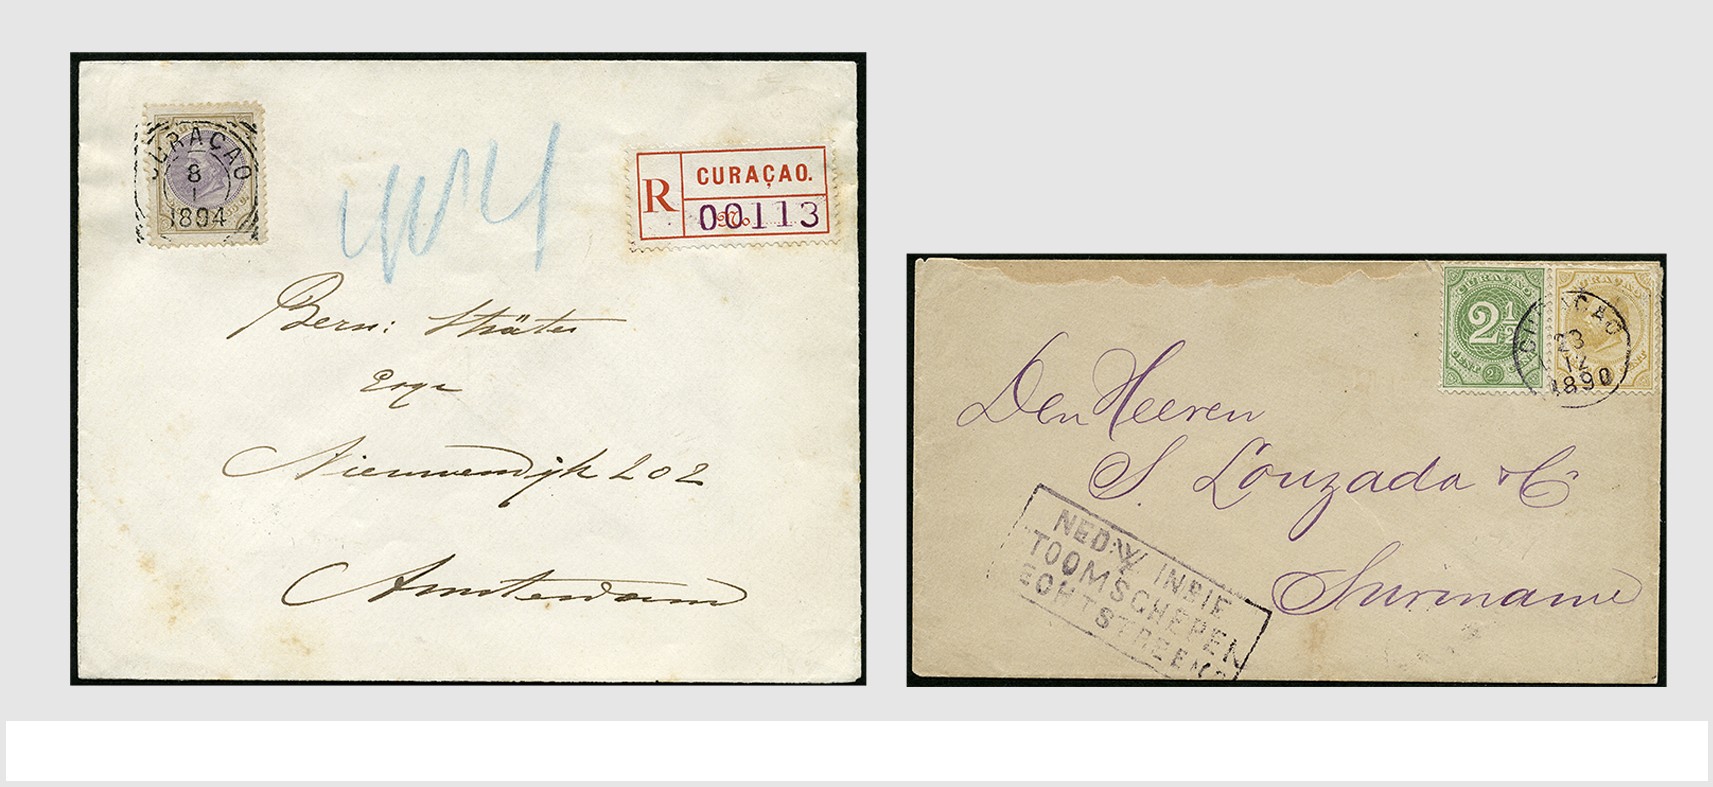 CURAÇAO
8
1
1894
R
CURAÇAO.
No
00113
Bern: Sträter
Esqr
Nieuwendijk 202
Amsterdam
CURAÇAO
2 1/2
CENT
2 1/2
CURAÇAO
23
12
1890
Den Heeren
S. Louzada & Co
Suriname
NED: W INDIE
TOOMSCHEPEN
ECHTSTREEKS